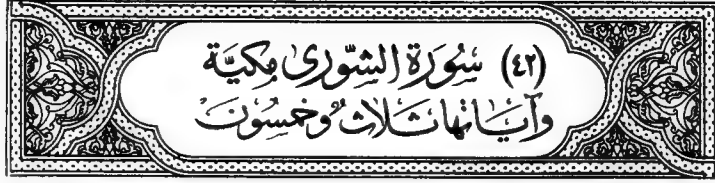 (٤٢) سُورَة الشّورىٰ مِكيَّة
وَآيَاتهَا ثَلاثٌ وَخمسُونَ